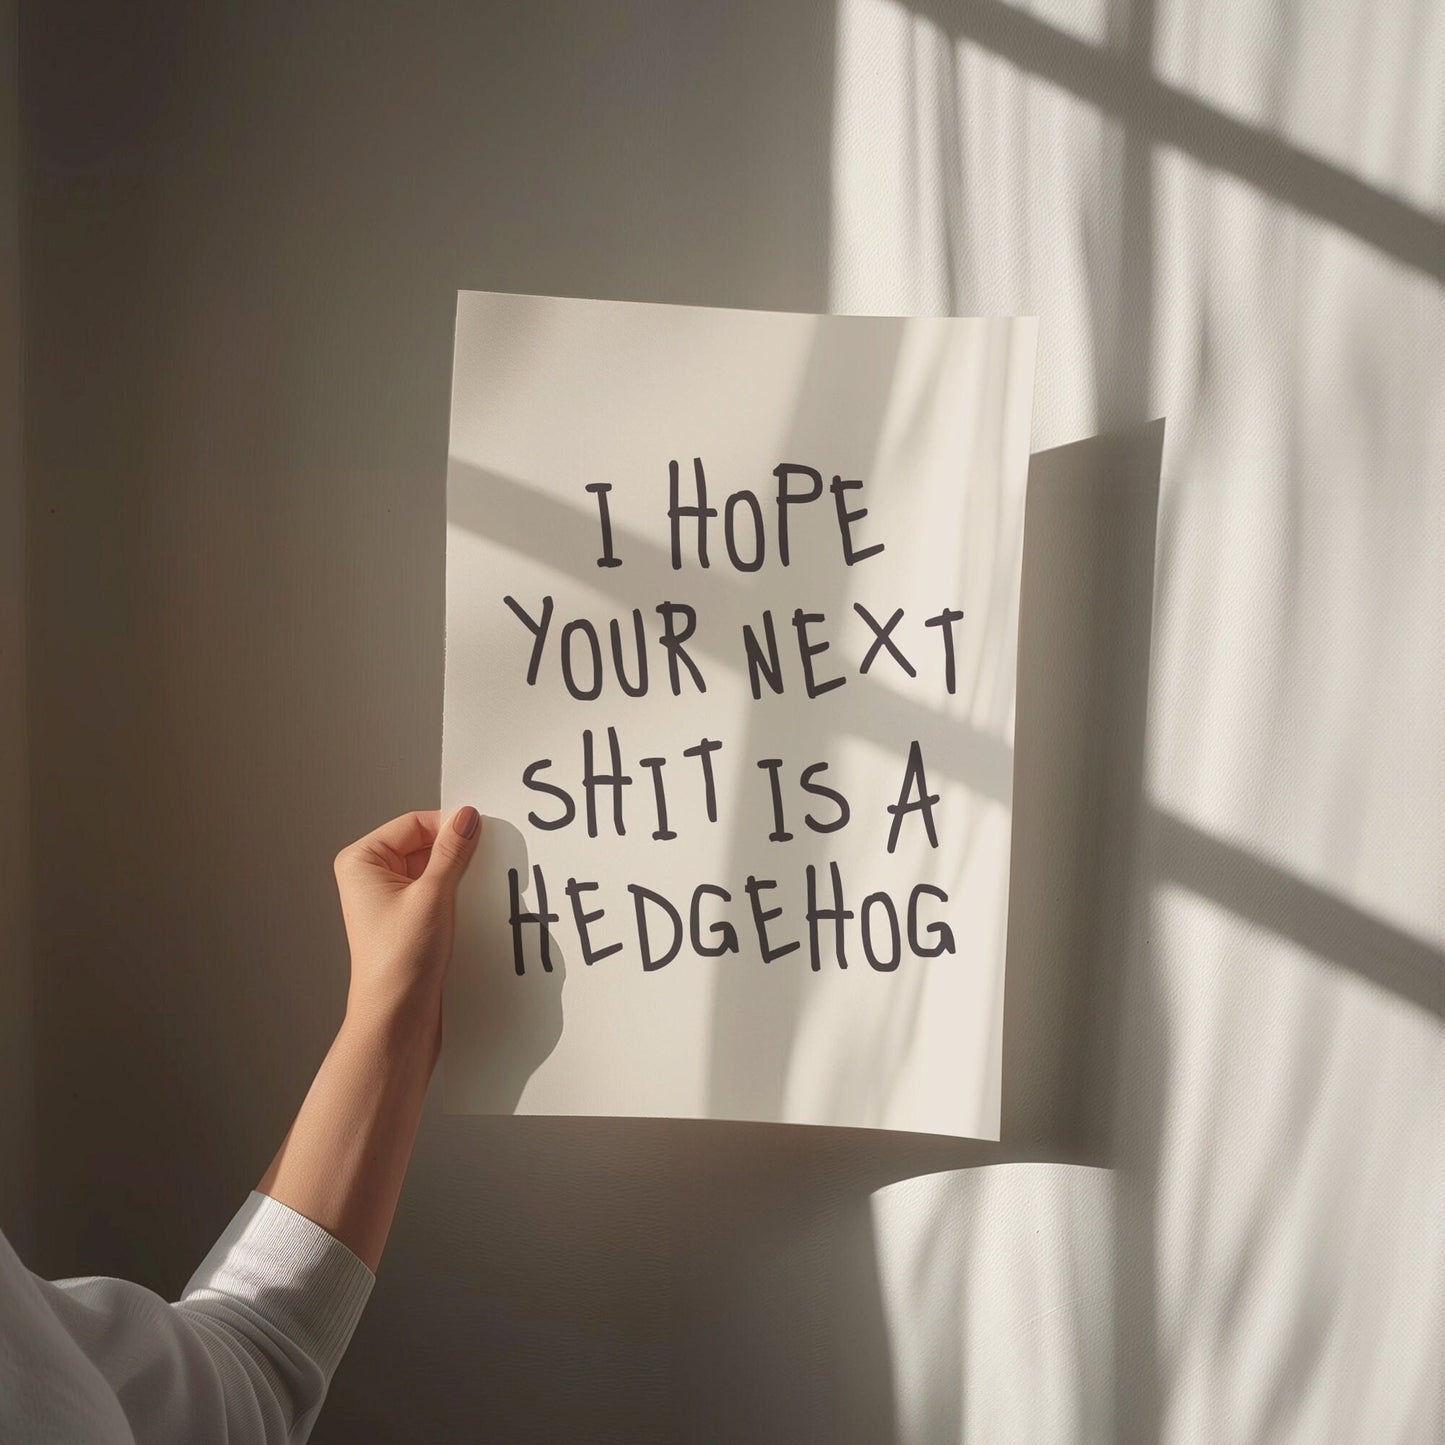 I HOPE
YOUR NEXT
SHIT IS A
HEDGEHOG